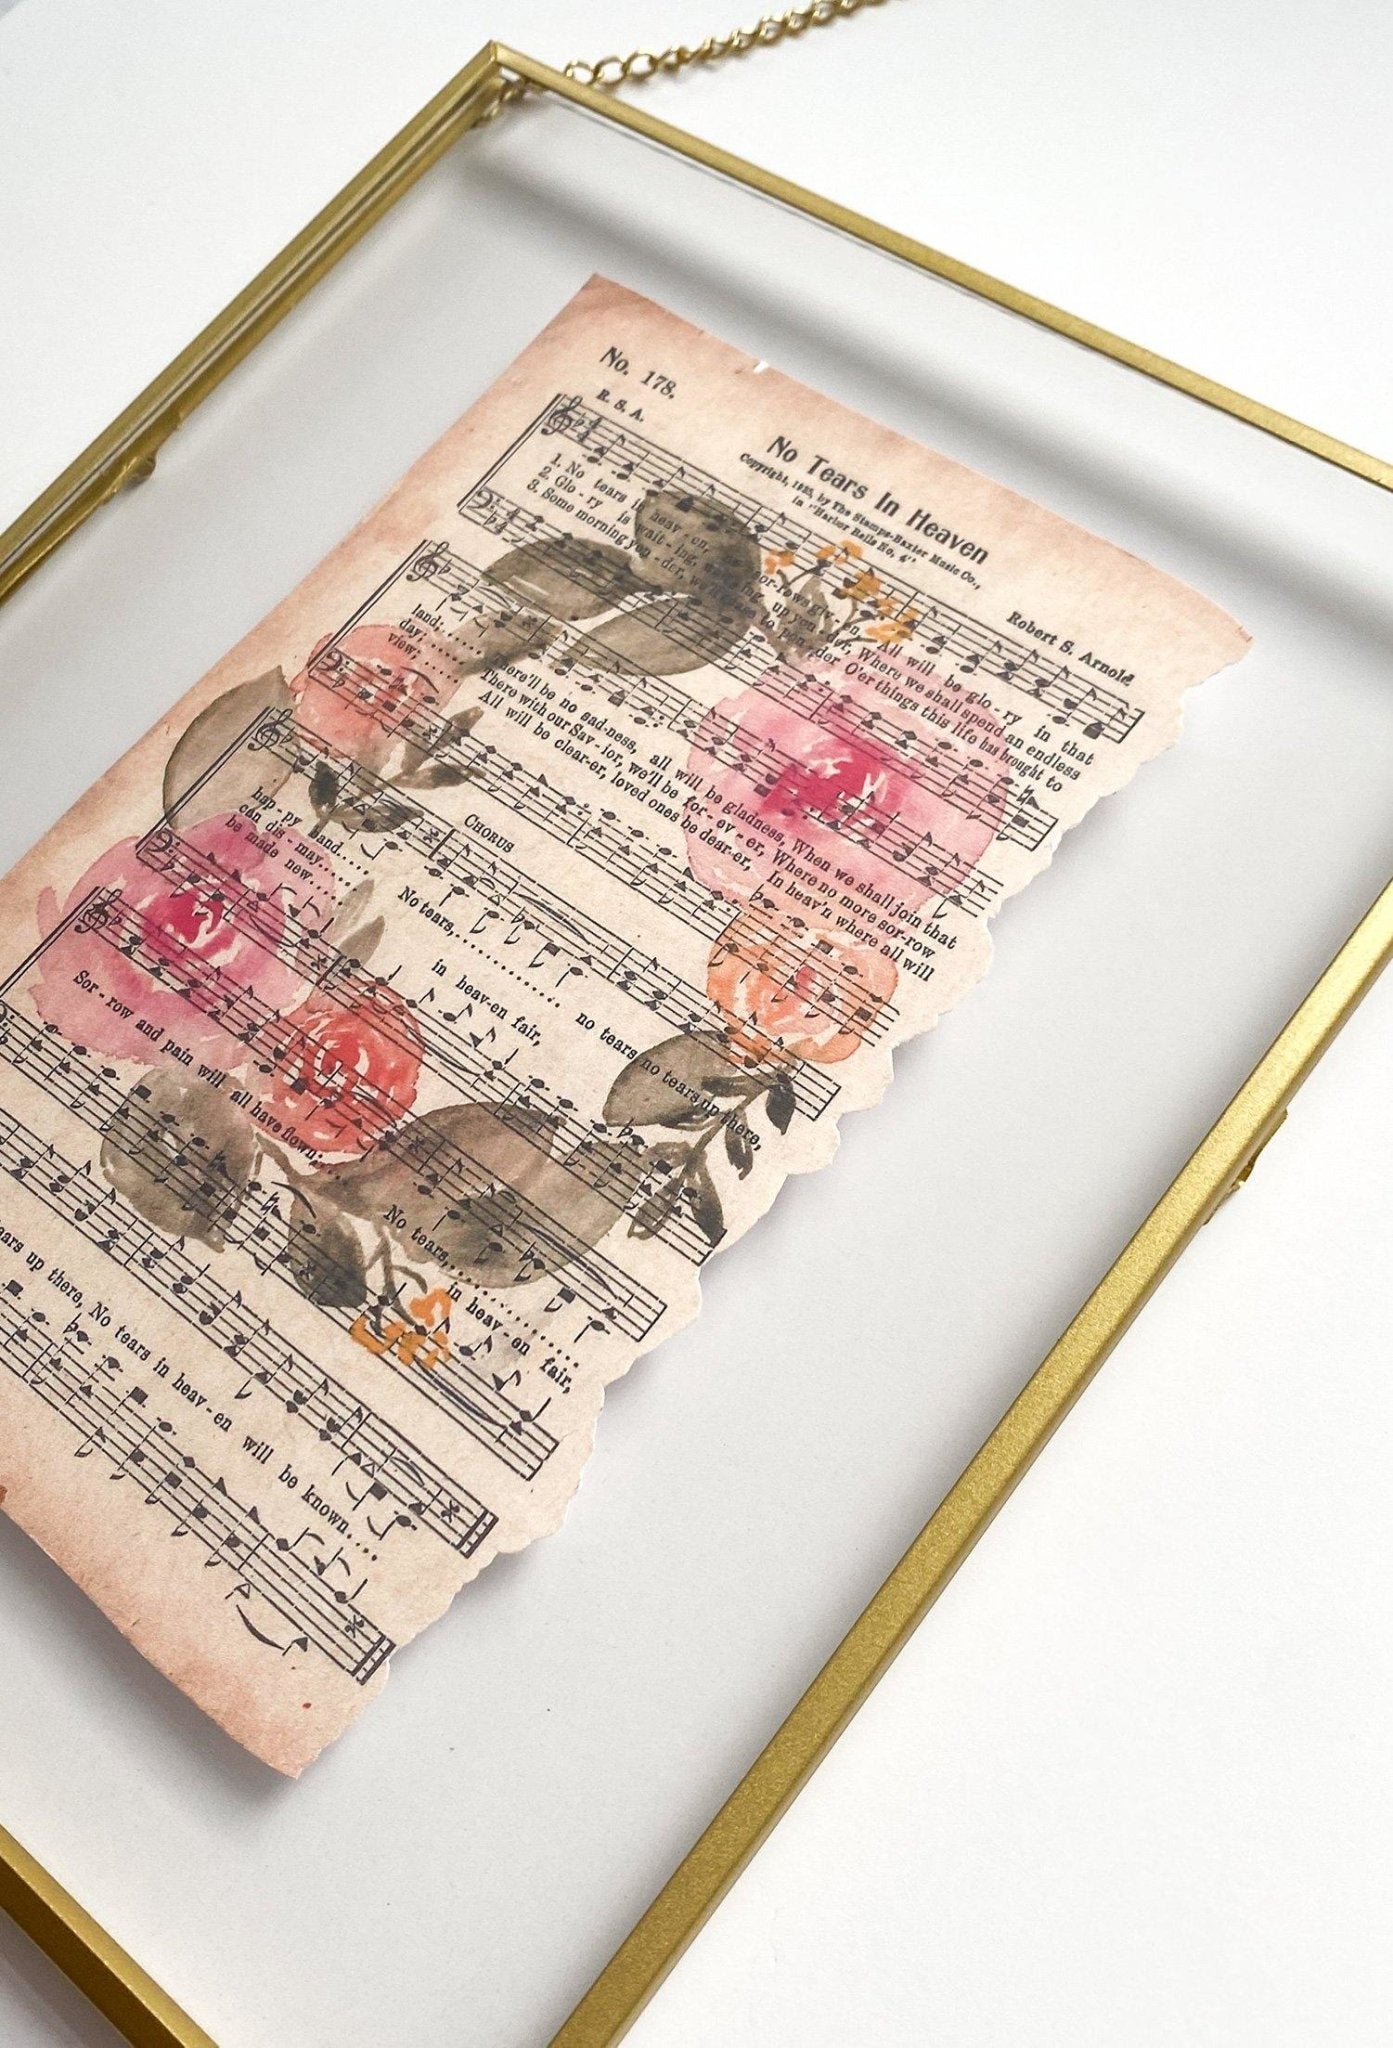 No. 178.
No Tears In Heaven
Copyright, 1935, by The Stamps-Baxter Music Co.,
in "Harbor Bells No. 4"
R. S. A.
Robert S. Arnold
1. No tears in heav - en, no sor-rows giv - en. All will be glo - ry in that
2. Glo - ry is wait - ing, wait - ing up yon - der, Where we shall spend an endless
3. Some morning yon - der, we'll cease to pon - der O'er things this life has brought to
land; There'll be no sad-ness, all will be gladness, When we shall join that
day; There with our Sav - ior, we'll be for - ev - er, Where no more sor-row
view; All will be clear-er, loved ones be dear-er, In heav'n where all will
CHORUS
hap - py band....
can dis - may....
be made new....
No tears, no tears
in heav-en fair, no tears up there,
Sor - row and pain will all have flown; No tears,
in heav-en fair,
up there, No tears in heav - en will be known....